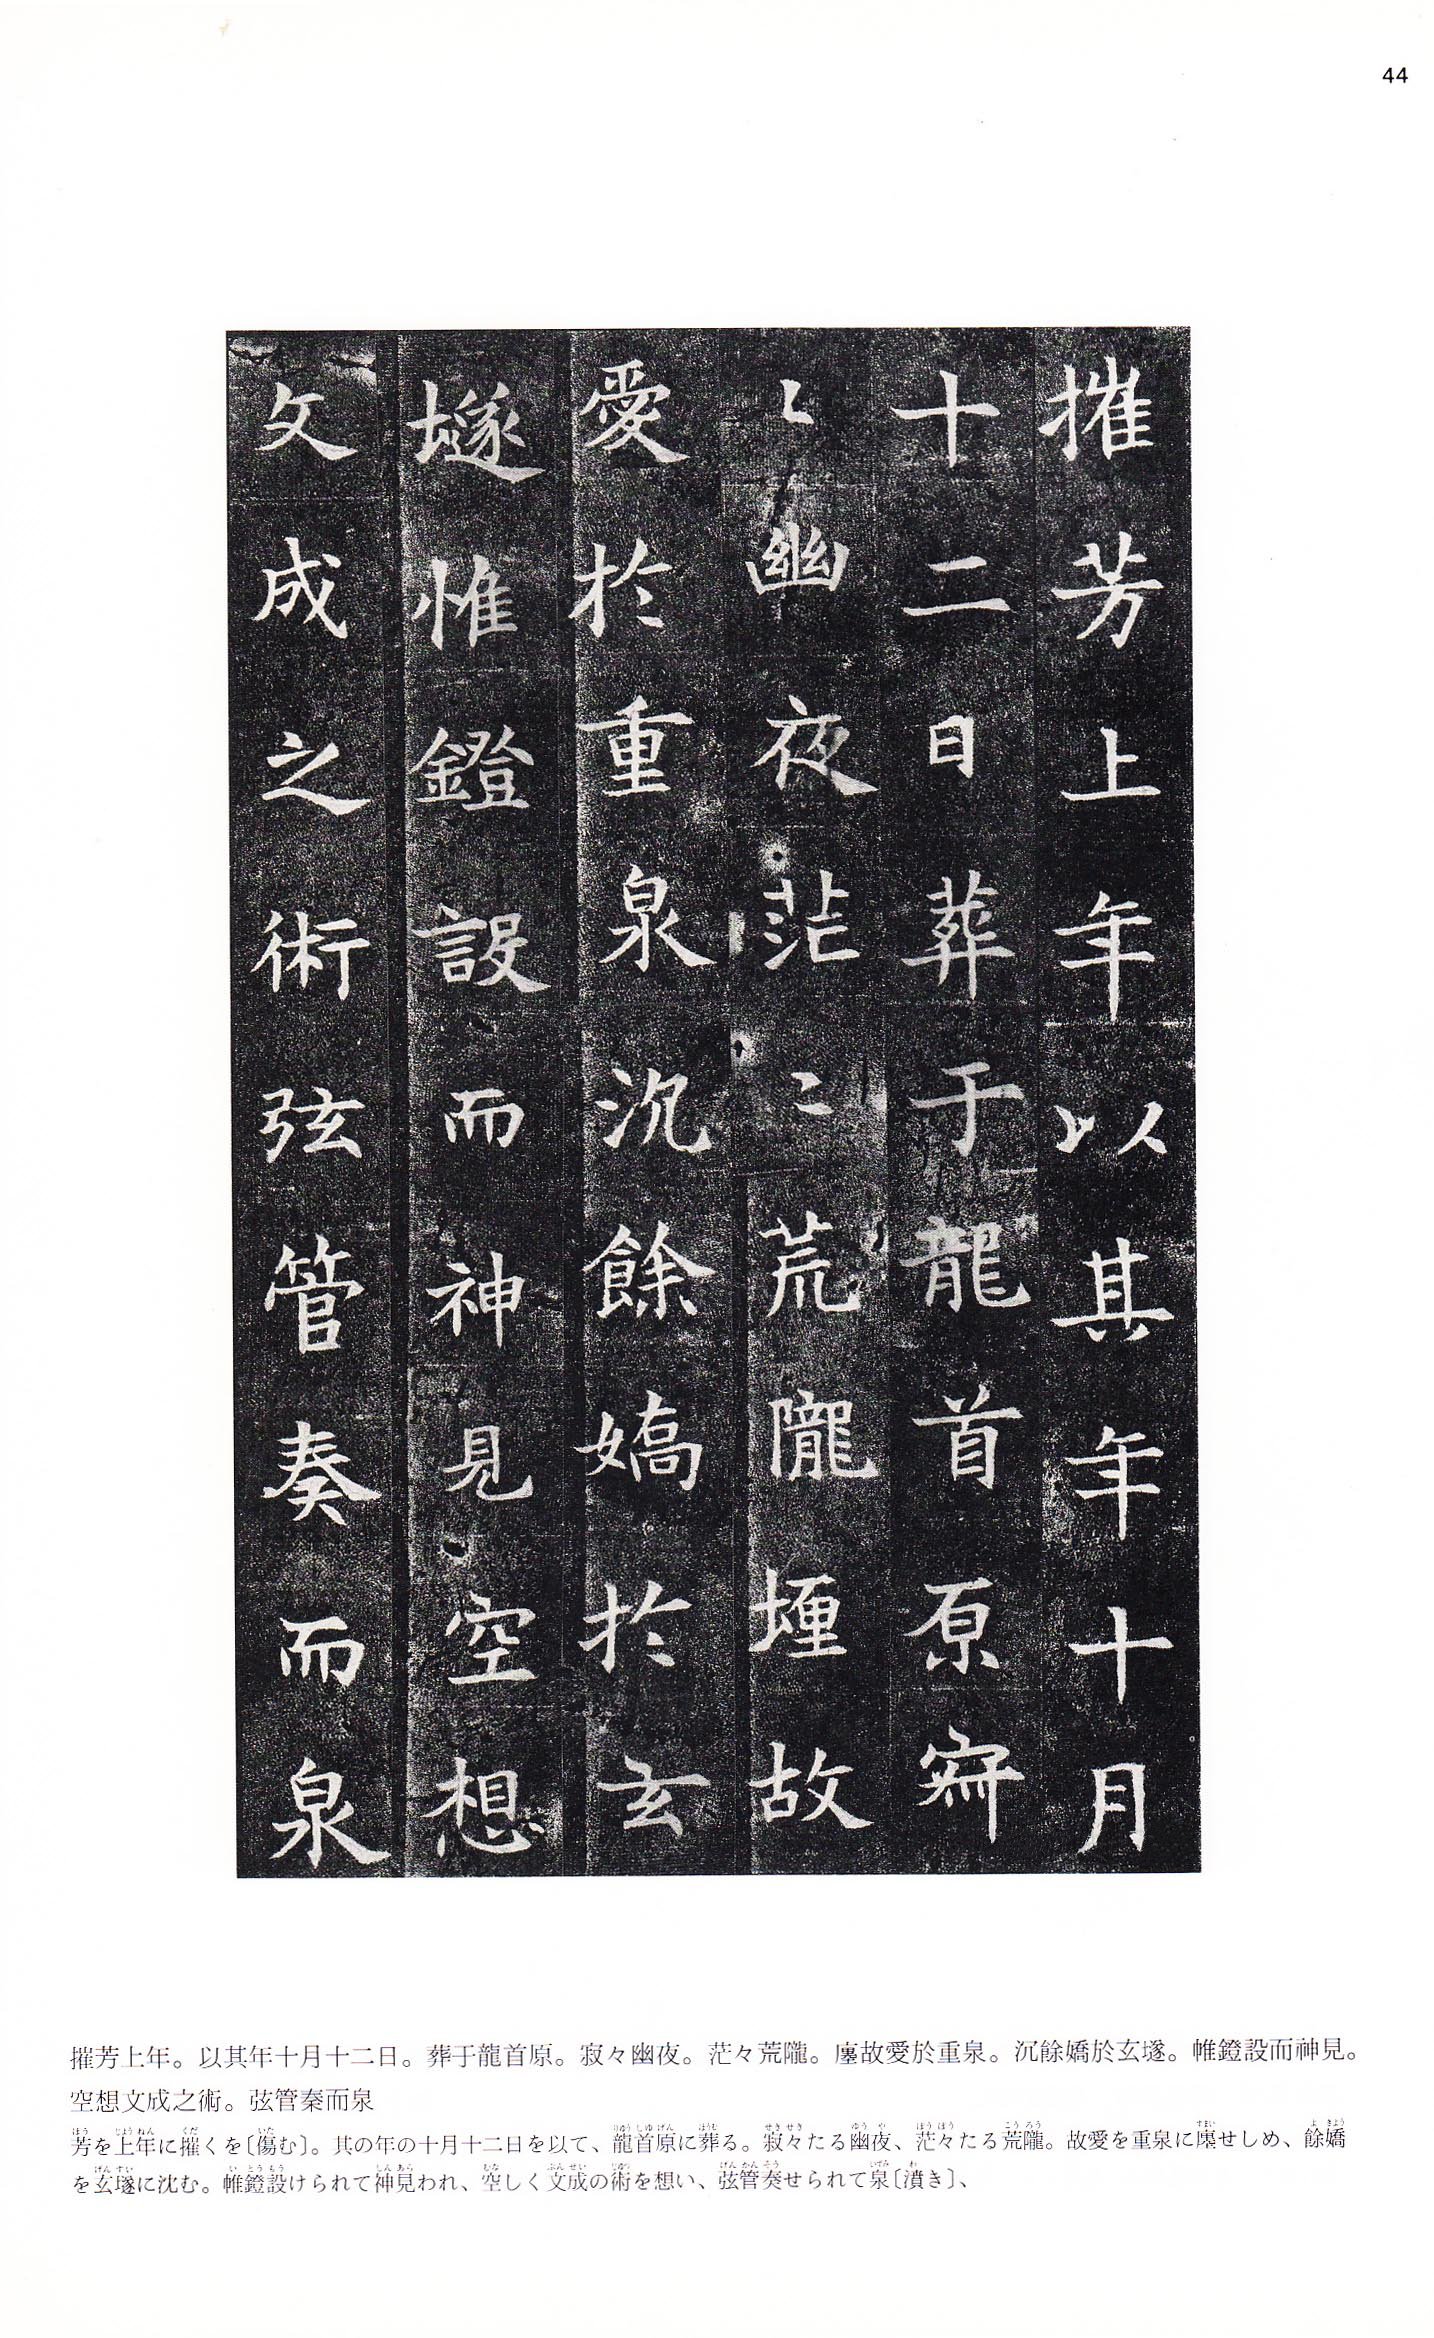 44
摧芳上年以其年十月
十二日葬于龍首原寂
〻幽夜茫〻荒隴堙故
愛於重泉沉餘嬌於玄
墜惟鐙設而神見空想
文成之術弦管奏而泉
摧芳上年。以其年十月十二日。葬于龍首原。寂々幽夜。茫々荒隴。廛故愛於重泉。沉餘嬌於玄墜。帷鐙設而神見。
空想文成之術。弦管秦而泉
芳を上年に摧くを〔傷む〕。其の年の十月十二日を以て、龍首原に葬る。寂々たる幽夜、茫々たる荒隴。故愛を重泉に廛せしめ、餘嬌
を玄墜に沈む。帷鐙設けられて神見われ、空しく文成の術を想い、弦管奏せられて泉〔濆き〕、